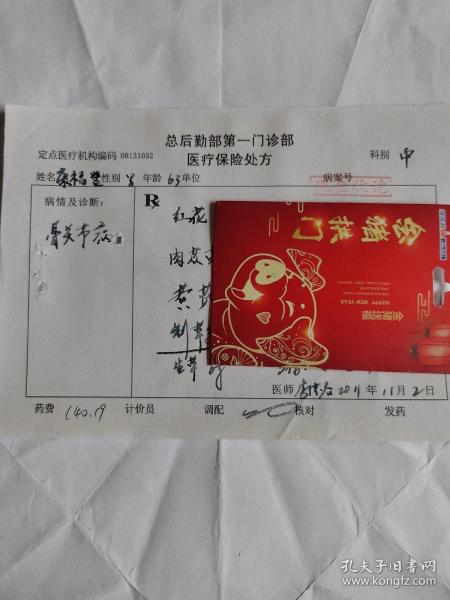 总后勤部第一门诊部
定点医疗机构编码 08131032
医疗保险处方
科别 中
姓名 康福 性别 男 年龄 63 单位
病案号
病情及诊断:
骨关节病
R
红花
肉苁
黄芪
制草
生草
医师 2011年11月2日
药费 140.19 计价员 调配 核对 发药
金猪拱门
HAPPY NEW YEAR
金猪送福
孔夫子旧书网
www.kongfz.com